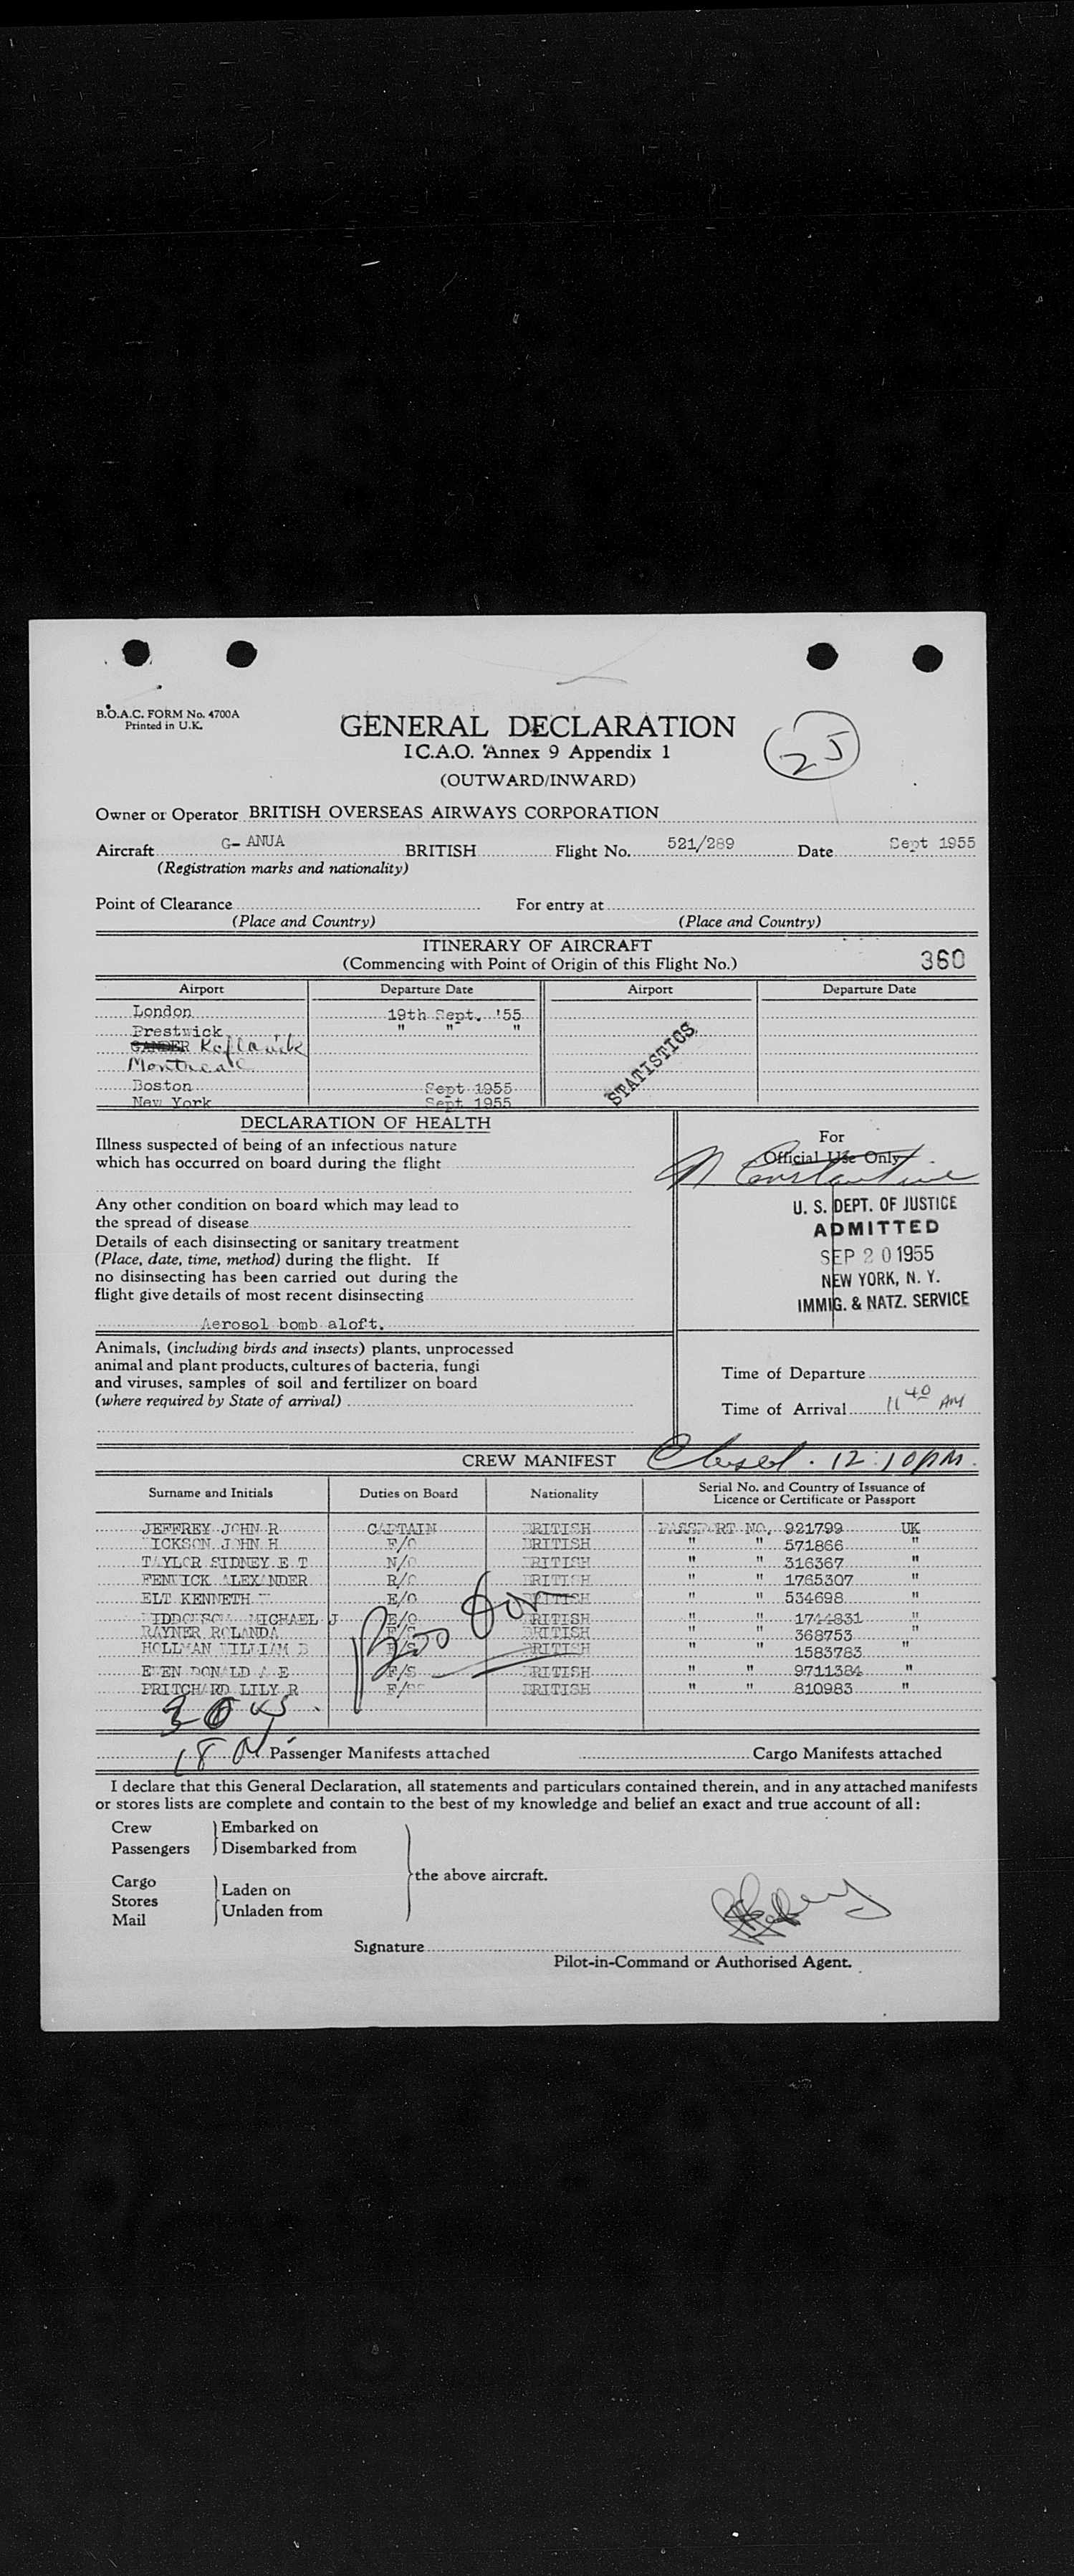 B.O.A.C. FORM No. 4700A
Printed in U.K.
GENERAL DECLARATION
I.C.A.O. Annex 9 Appendix 1
(OUTWARD/INWARD)
25
Owner or Operator BRITISH OVERSEAS AIRWAYS CORPORATION
Aircraft G- ANUA BRITISH Flight No. 521/289 Date Sept 1955
(Registration marks and nationality)
Point of Clearance For entry at
(Place and Country) (Place and Country)
ITINERARY OF AIRCRAFT
(Commencing with Point of Origin of this Flight No.) 360
Airport Departure Date Airport Departure Date
London 19th Sept. '55
Prestwick " " "
GANDER Keflavik
Montreal
Boston Sept 1955
New York Sept 1955
STATISTICS
DECLARATION OF HEALTH
Illness suspected of being of an infectious nature
which has occurred on board during the flight
Any other condition on board which may lead to
the spread of disease
Details of each disinsecting or sanitary treatment
(Place, date, time, method) during the flight. If
no disinsecting has been carried out during the
flight give details of most recent disinsecting
Aerosol bomb aloft.
Animals, (including birds and insects) plants, unprocessed
animal and plant products, cultures of bacteria, fungi
and viruses, samples of soil and fertilizer on board
(where required by State of arrival)
For
Official Use Only
N Constantine
U. S. DEPT. OF JUSTICE
ADMITTED
SEP 20 1955
NEW YORK, N. Y.
IMMIG. & NATZ. SERVICE
Time of Departure
Time of Arrival 11 40 AM
CREW MANIFEST Closed. 12:10 PM.
Surname and Initials Duties on Board Nationality Serial No. and Country of Issuance of
Licence or Certificate or Passport
JEFFREY JOHN R CAPTAIN BRITISH PASSPORT NO. 921799 UK
JOHN H F/O BRITISH " " 571866 "
TAYLOR SIDNEY E T N/O BRITISH " " 316367 "
FENWICK ALEXANDER R/O BRITISH " " 1765307 "
ELT KENNETH E/O BRITISH " " 534698 "
MICHAEL J E/O BRITISH " " 1744831 "
RAYNER ROLANDA F/S BRITISH " " 368753 "
HOLLMAN WILLIAM D F/S BRITISH " " 1583783 "
EWEN DONALD A E F/S BRITISH " " 9711384 "
PRITCHARD LILY R F/SS BRITISH " " 810983 "
Passenger Manifests attached Cargo Manifests attached
I declare that this General Declaration, all statements and particulars contained therein, and in any attached manifests
or stores lists are complete and contain to the best of my knowledge and belief an exact and true account of all:
Crew Embarked on
Passengers Disembarked from
the above aircraft.
Cargo Laden on
Stores
Mail Unladen from
Signature
Pilot-in-Command or Authorised Agent.